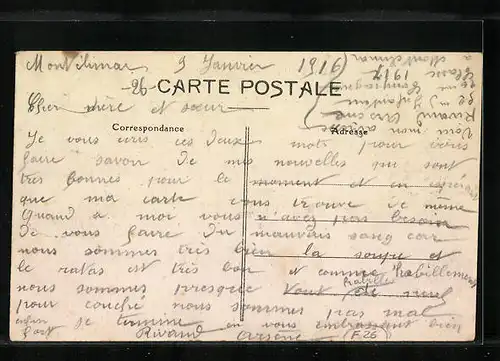 Montélimar 9 Janvier 1916
-26
CARTE POSTALE
Cher mère et sœur
Correspondance
Adresse
Voici mon adresse
Rivaud Arsène
Classe 1917
à Montélimar
Je vous écris ces deux mots pour vous
faire savoir de mes nouvelles qui sont
très bonnes pour le moment et en espérant
que ma carte vous trouve de même
Quand a moi vous n'avez pas besoin
de vous faire du mauvais sang car
nous sommes très bien la soupe et
le ratas est très bon et comme habillement
nous sommes presque habillé tout de neuf
pour couché nous sommes pas mal
enfin je termine en vous embrassant bien
fort Rivaud Arsène
F26